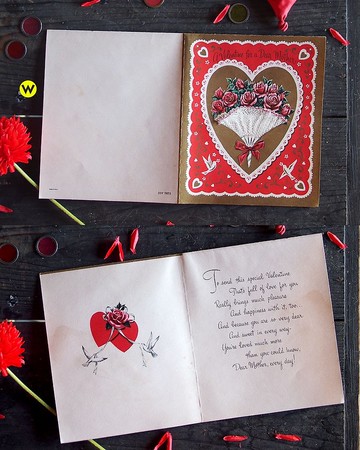 W
Valentine for a Dear
To send this special Valentine
That's full of love for you
Really brings much pleasure
And happiness with it, too.
And because you are so very dear
And sweet in every way.
You're loved much more
than you could know,
Dear Mother, every day!